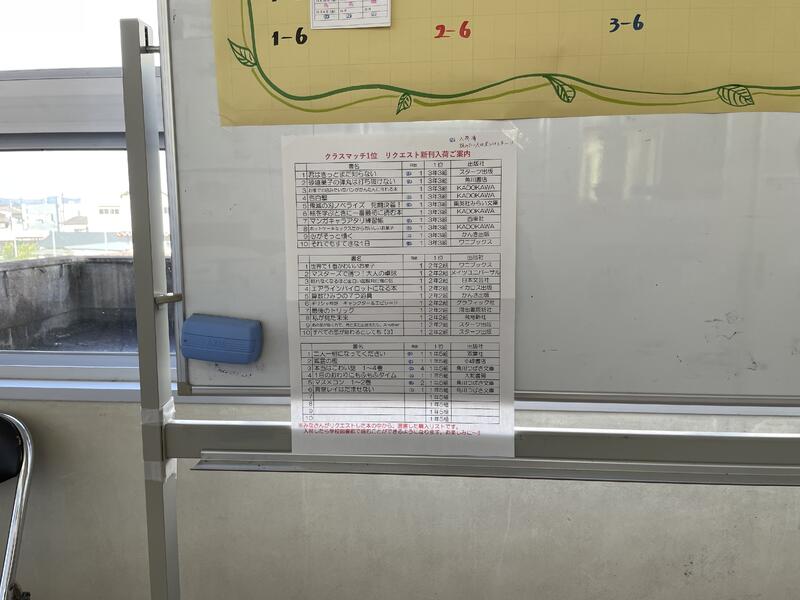 1-6
2-6
3-6
クラスマッチ1位 リクエスト新刊入荷ご案内
書名 1位 出版社
1 君はきっとまだ知らない 1 3年3組 スターツ出版
2 砂糖菓子の弾丸は撃ちぬけない 1 3年3組 角川書店
3 1 3年3組 KADOKAWA
4 告白撃 1 3年3組 KADOKAWA
5 鬼滅の刃ノベライズ 1 3年3組 集英社みらい文庫
6 絵を学ぶときに一番最初に読む本 1 3年3組 KADOKAWA
7 マンガキャラアタリ練習帳 1 3年3組 西東社
8 1 3年3組 KADOKAWA
9 心がそっと傾く 1 3年3組 かんき出版
10 それでもすてきな1日 1 3年3組 ワニブックス
書名 1位 出版社
1 世界で1番かわいいお菓子 1 2年2組 ワニブックス
2 マスターズで勝つ！大人の卓球 1 2年2組 メイツユニバーサル
3 1 2年2組 日本文芸社
4 エアラインパイロットになる本 1 2年2組 イカロス出版
5 算数ひみつの7つ道具 1 2年2組 かんき出版
6 1 2年2組 グラフィック社
7 最後のトリック 1 2年2組 河出書房新社
8 私が見た未来 1 2年2組 飛鳥新社
9 1 2年2組 スターツ出版
10 すべての恋が終わるとしても【3】 1 2年2組 スターツ出版
書名 1位 出版社
1 二人一組になってください 1 1年5組 双葉社
2 1 1年5組 小峰書店
3 本当はこわい話 1～4巻 4 1年5組 角川つばさ文庫
4 1日のおわりにもふもふタイム 1 1年5組 大和書房
5 マス×コン 1～2巻 2 1年5組 角川つばさ文庫
6 真堂レイはだませない 1 1年5組 角川つばさ文庫
7 1年5組
8 1年5組
9 1年5組
10 1年5組
※みなさんがリクエストした本の中から、選書した購入リストです。
入荷したら学校図書館で読むことができるようになります。お楽しみに～♪